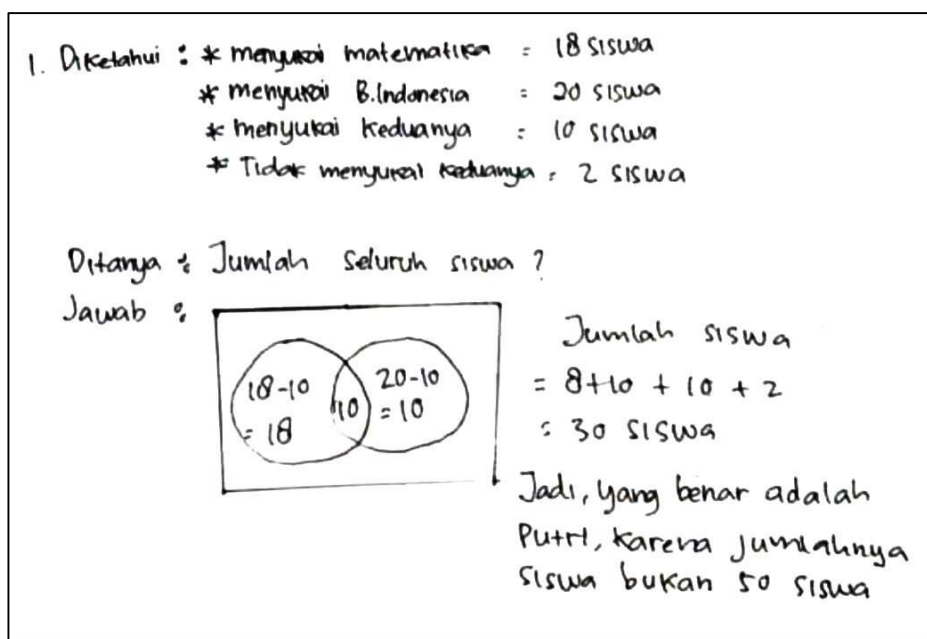 1. Diketahui : * menyukai matematika = 18 siswa
* menyukai B.Indonesia : 20 siswa
* menyukai keduanya : 10 siswa
* Tidak menyukai keduanya = 2 siswa
Ditanya : Jumlah seluruh siswa ?
Jawab :
18-10
= 18
10
20-10
= 10
Jumlah siswa
= 8+10 + 10 + 2
= 30 siswa
Jadi, yang benar adalah
Putri, karena jumlahnya
siswa bukan 50 siswa